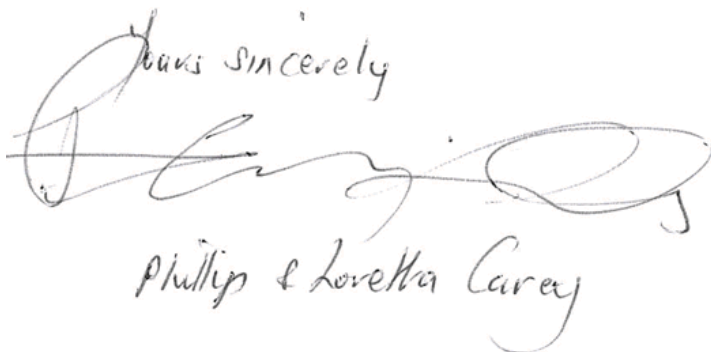 Yours sincerely
Phillip & Loretta Carey